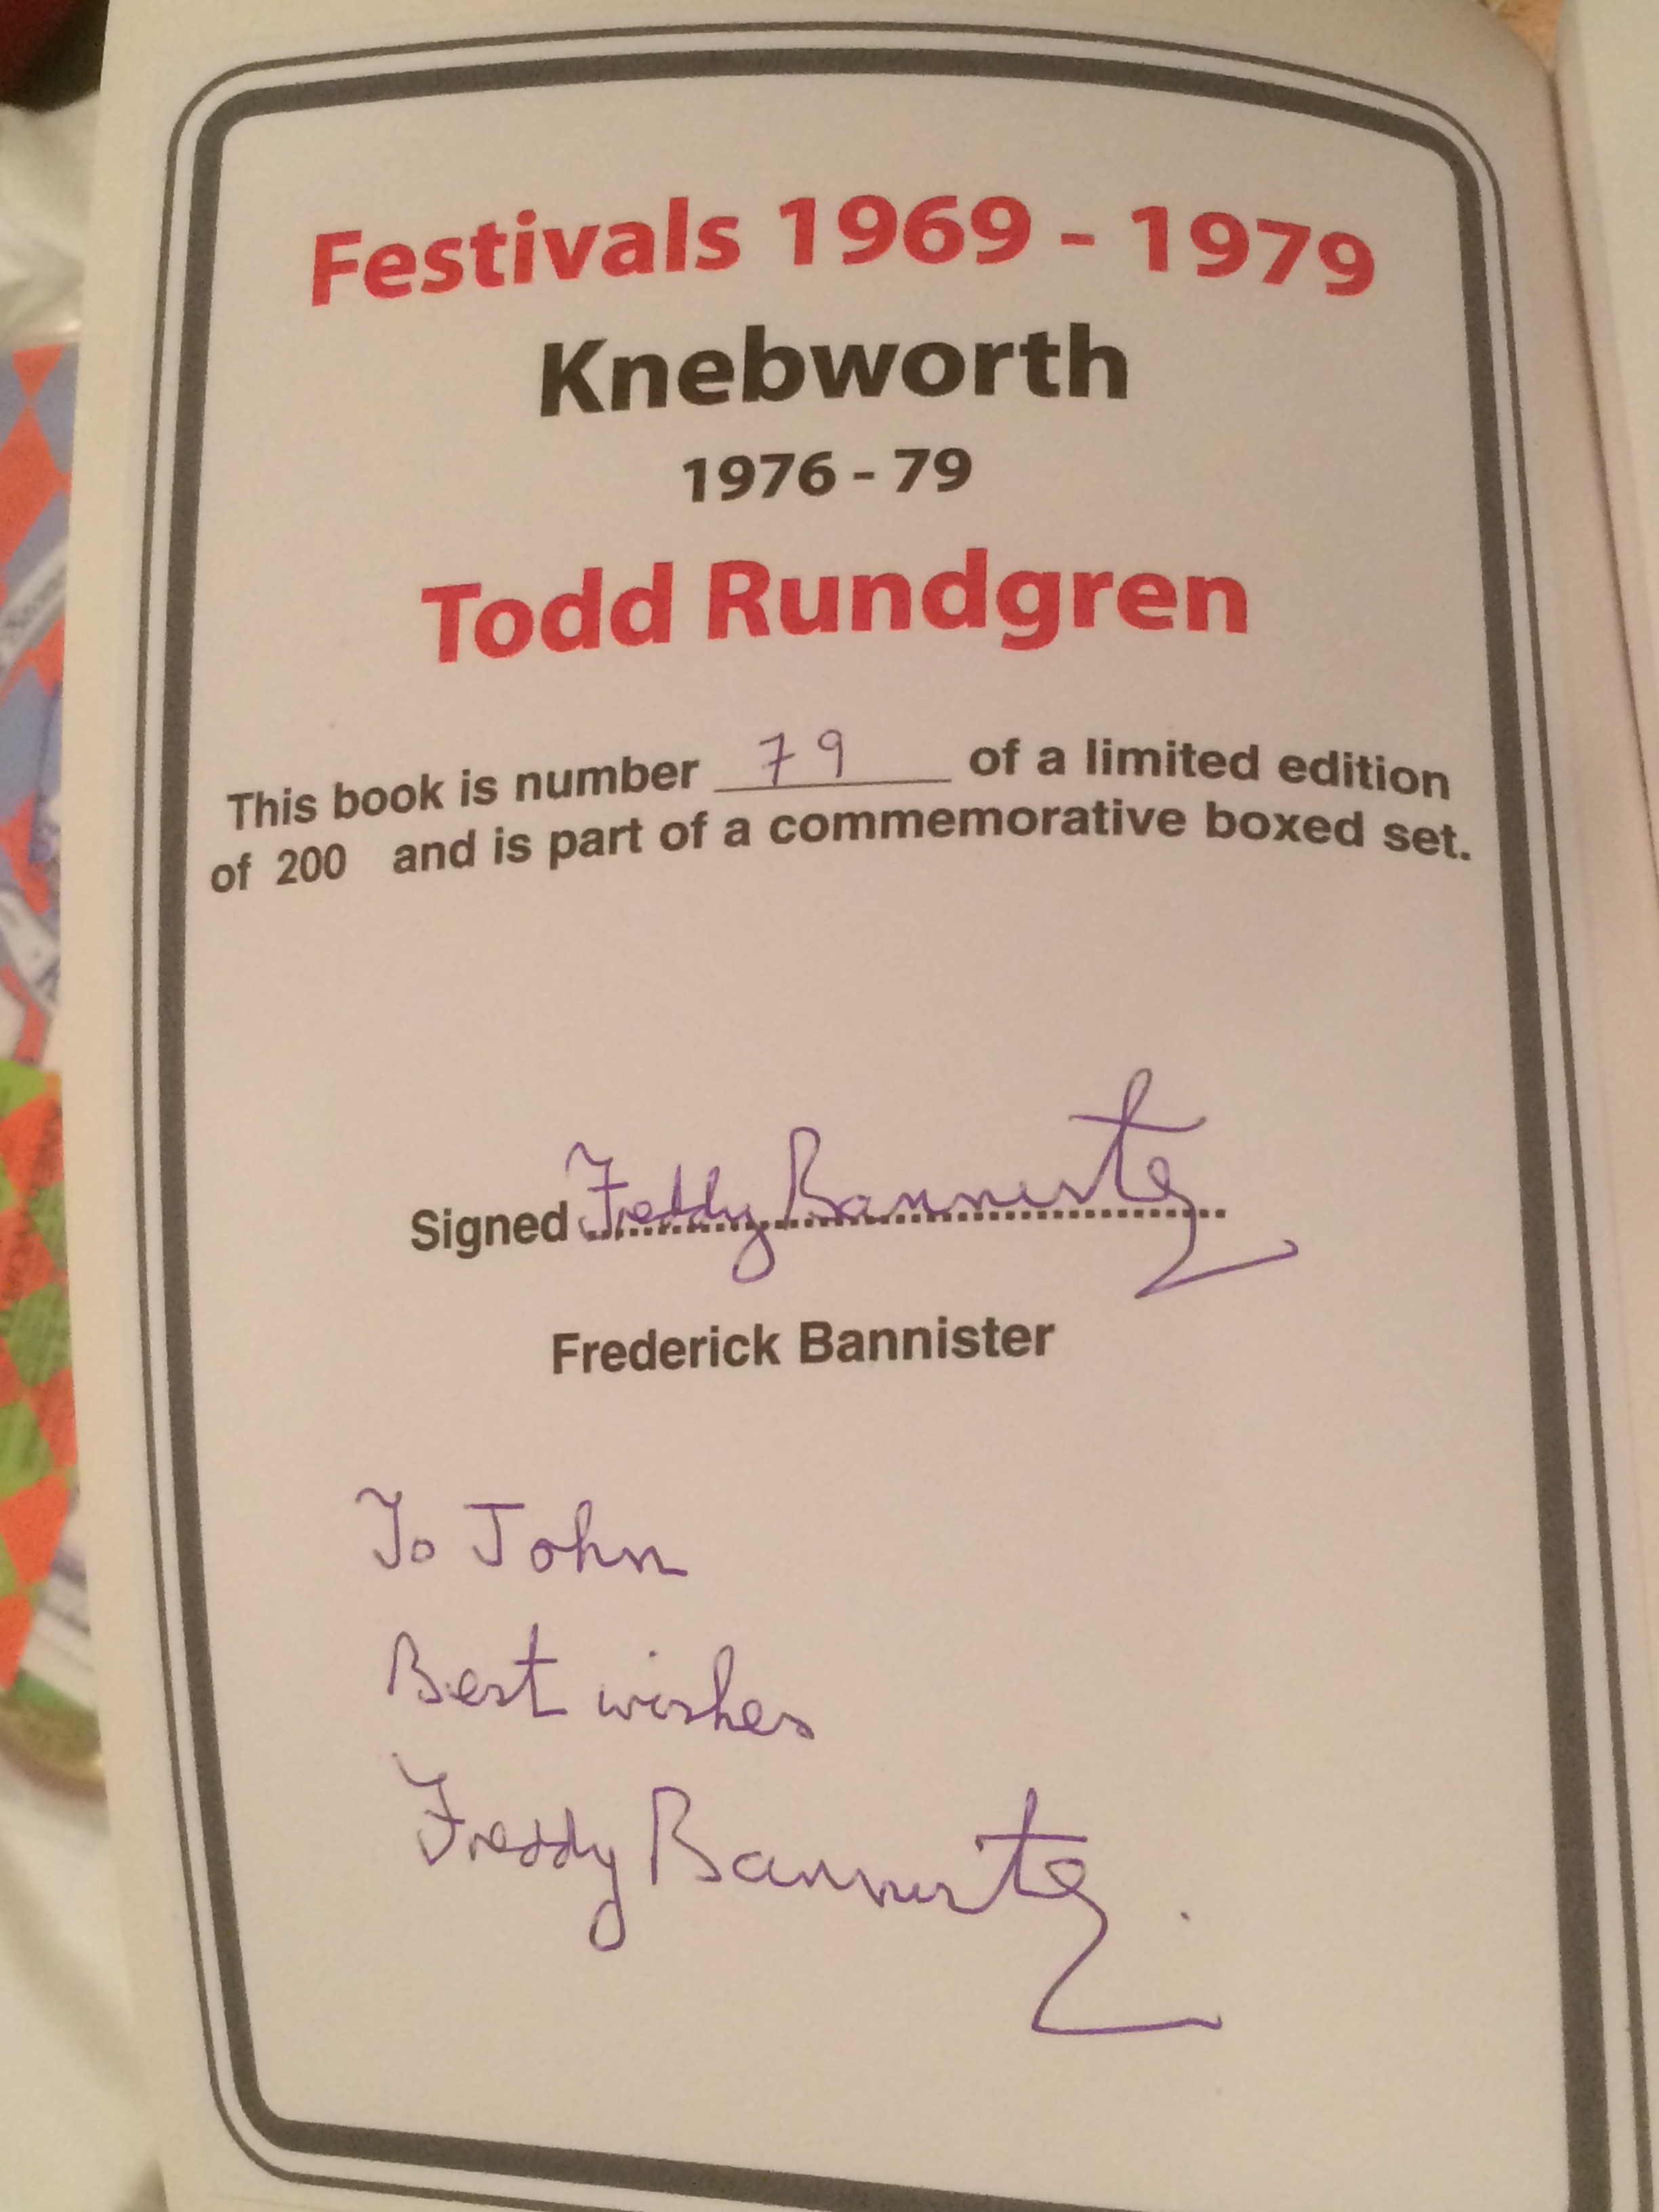 Festivals 1969 - 1979
Knebworth
1976 - 79
Todd Rundgren
This book is number 79 of a limited edition
of 200 and is part of a commemorative boxed set.
Signed Freddy Bannister
Frederick Bannister
To John
Best wishes
Freddy Bannister